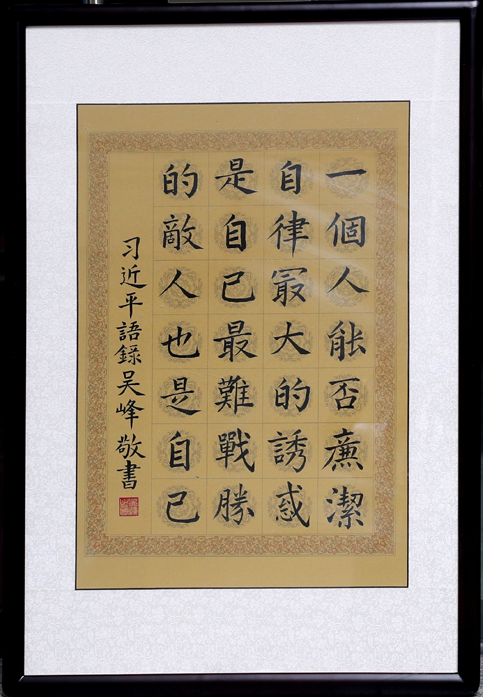 一個人能否廉潔
自律冣大的誘惑
是自己最難戰勝
的敵人也是自己
习近平語録吴峰敬書